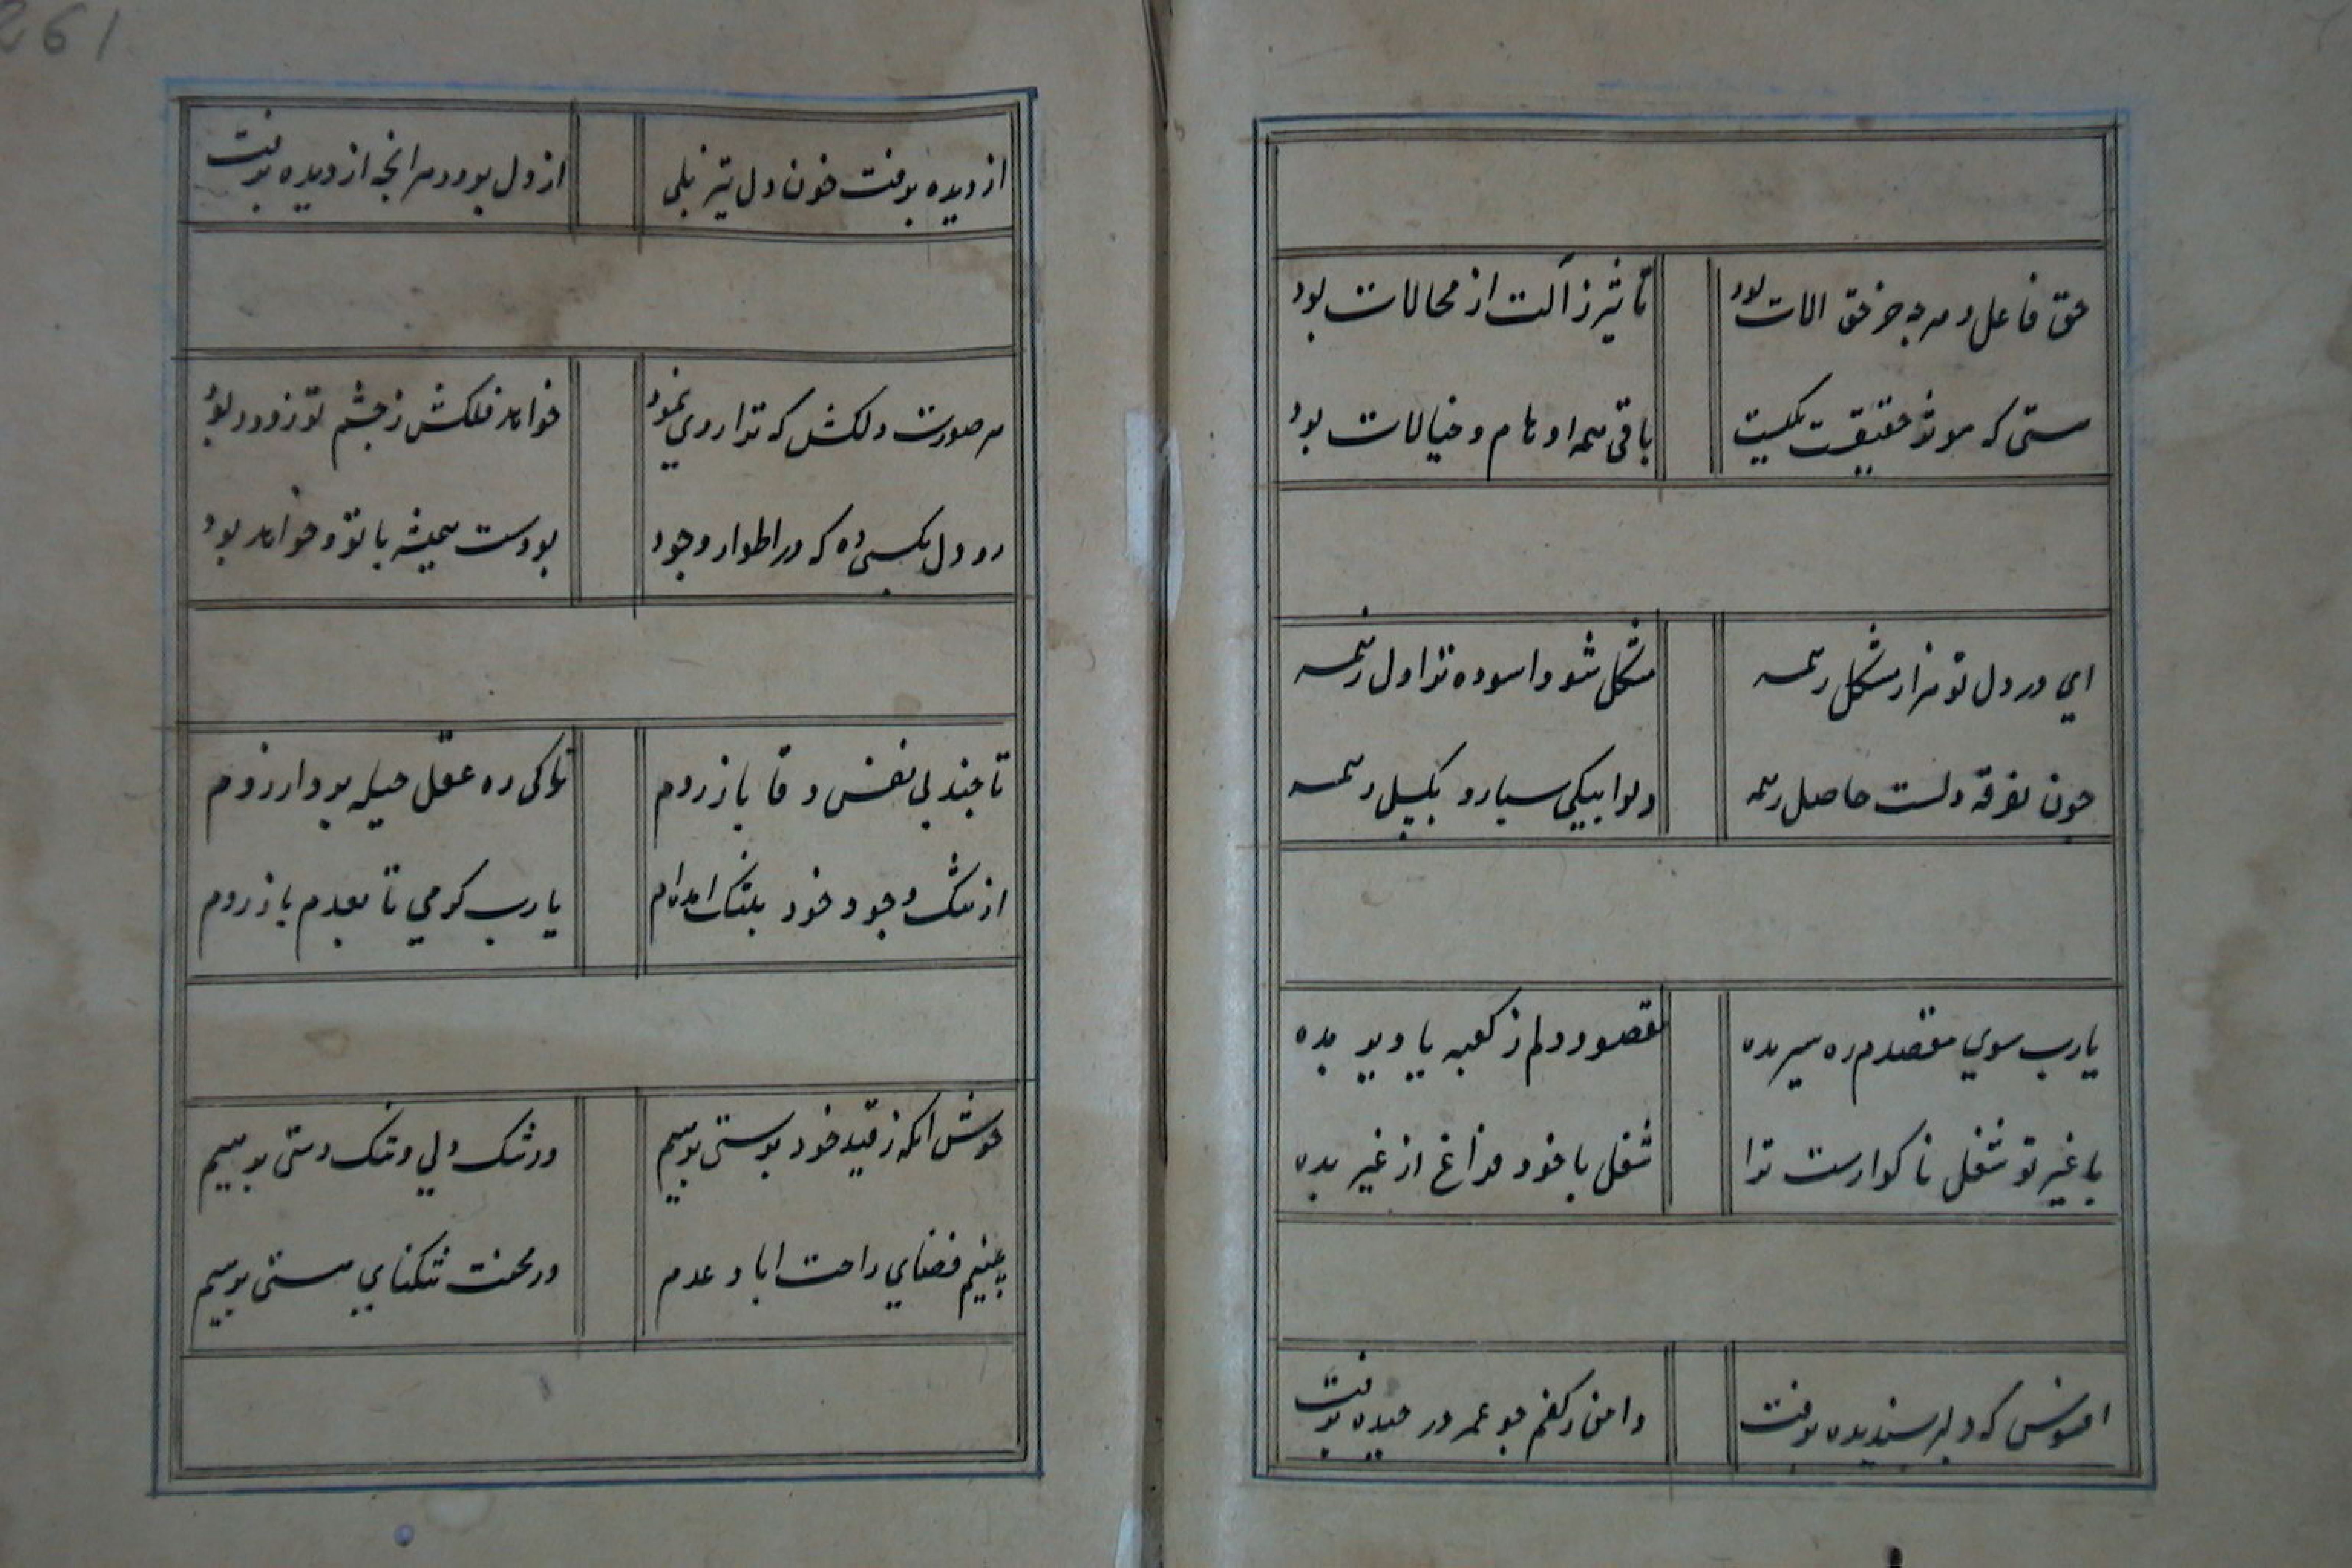 حق فاعل و هرچه جز حق الات بود تأثیر ز آلت از محالات بود
هستی که موثر حقیقیست یکیست باقی همه اوهام و خیالات بود
ای در دل تو هزار مشکل ز همه مشکل شود اسوده ترا دل ز همه
چون تفرقه دلست حاصل ز همه دل را بیکی سپار و بکسل ز همه
یارب سوی مقصدم ره سیر بده مقصود دلم ز کعبه یا دیر بده
با غیر تو شغل ناکوارست ترا شغل با خود فراغ از غیر بده
افسوس که دلبر پسندیده برفت دامن ز کفم چو عمر در چیده برفت
از دیده برفت خون دل نیز بلی از دل برود هر انچه از دیده برفت
هر صورت دلکش که ترا روی نمود خواهد فلکش ز چشم تو زود ربود
رو دل بکسی ده که در اطوار وجود بودست همیشه با تو و خواهد بود
تا چند پی نفس دغا باز روم تا کی ره عقل حیله پرداز روم
از ننک وجود خود بتنک امده‌ام یارب کرمی تا بعدم باز روم
خوش انکه ز قید خود پرستی برهیم وز ننک دلی و تنک دستی برهیم
بینیم فضای راحت اباد عدم وز محنت تنکنای هستی برهیم
261